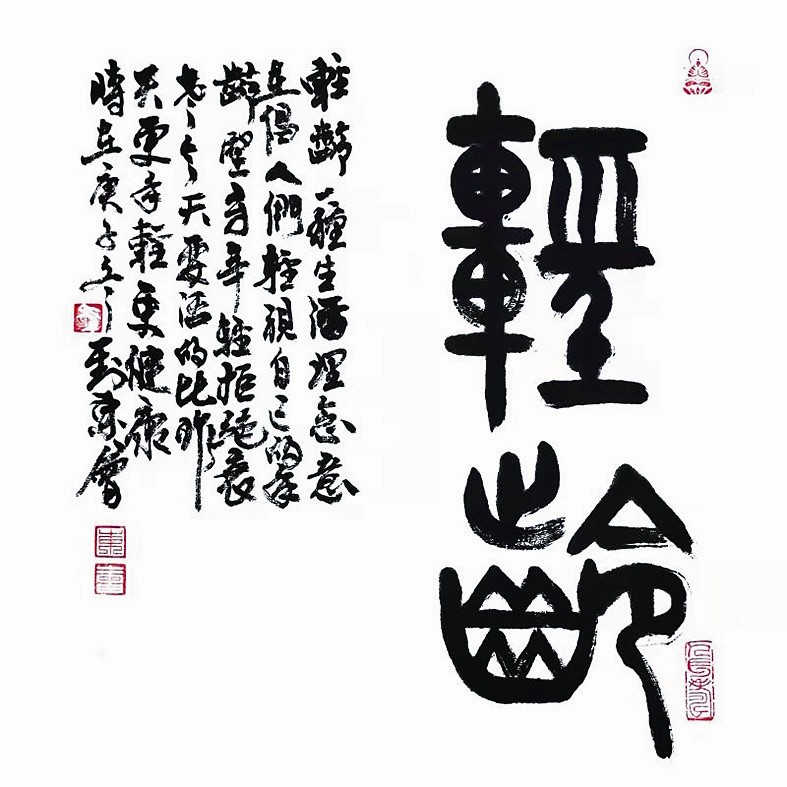 輕齡
輕齡一種生活理念意
在倡人們輕視自己的年
齡堅守年輕拒絕衰
老今天要活的比昨
天更年輕更健康
時在庚子